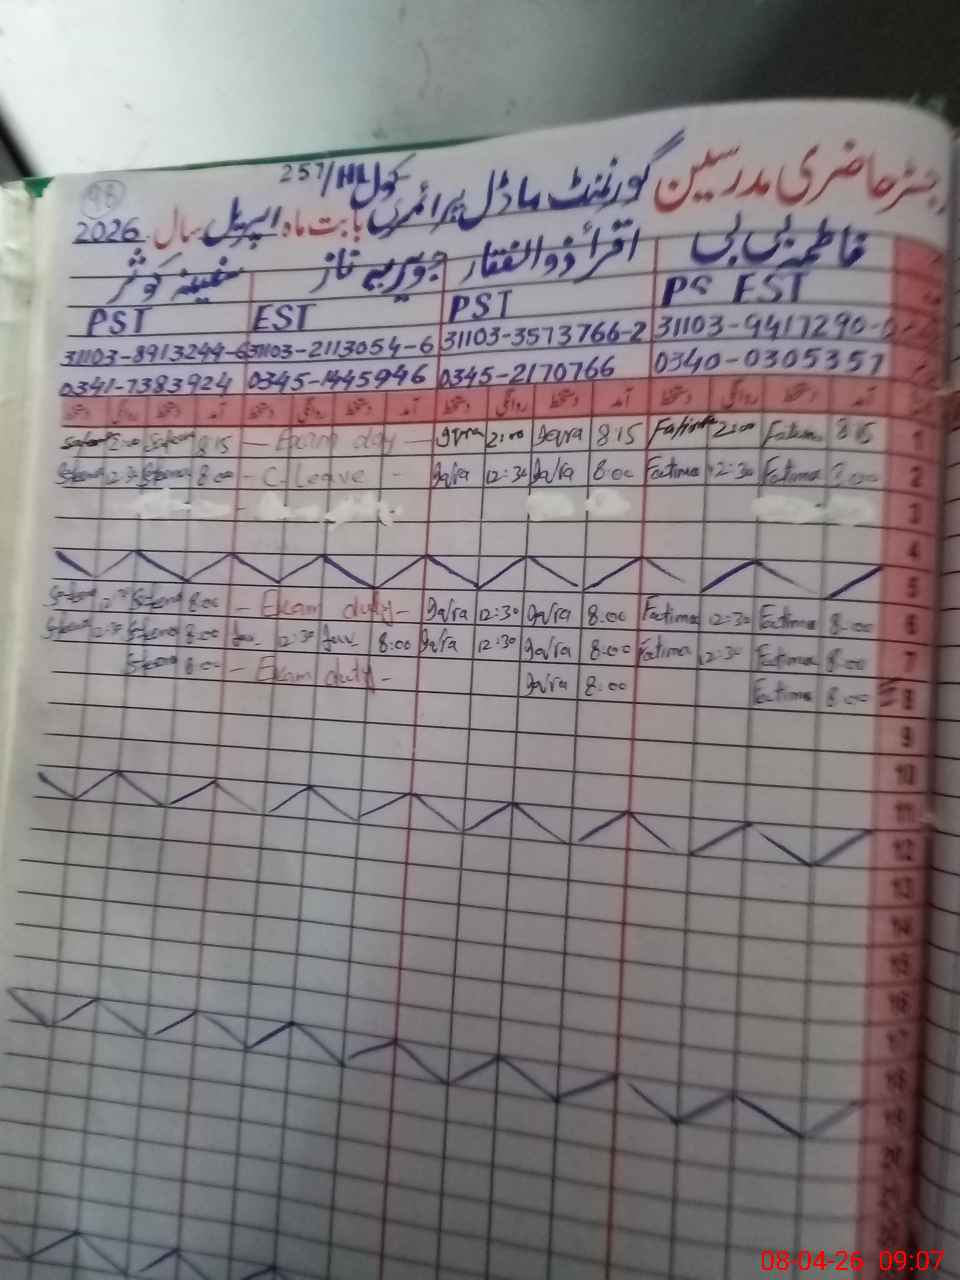 98
رجسٹر حاضری مدرسین گورنمنٹ ماڈل پرائمری سکول 257/HL
بابت ماہ اپریل سال 2026
فاطمہ بی بی اقرأ ذوالفقار جویریہ ناز سفینہ کوثر
PST EST PST PS EST
31103-8913244-6 31103-2113054-6 31103-3573766-2 31103-9417290-0
0341-7383924 0345-1445946 0345-2170766 0340-0305357
آمد دستخط روانگی دستخط آمد دستخط روانگی دستخط آمد دستخط روانگی دستخط آمد دستخط روانگی دستخط
2:00 8:15 - Exam duty - Iqra 2:00 Iqra 8:15 Fatima 2:00 Fatima 8:15 1
12:30 8:00 - C.Leave - Iqra 12:30 Iqra 8:00 Fatima 12:30 Fatima 8:00 2
3
4
5
8:00 - Exam duty - Iqra 12:30 Iqra 8:00 Fatima 12:30 Fatima 8:00 6
12:30 8:00 12:30 8:00 Iqra 12:30 Iqra 8:00 Fatima 12:30 Fatima 8:00 7
8:00 - Exam duty - Iqra 8:00 Fatima 8:00 8
9
10
11
12
13
14
15
16
17
18
19
20
08-04-26 09:07